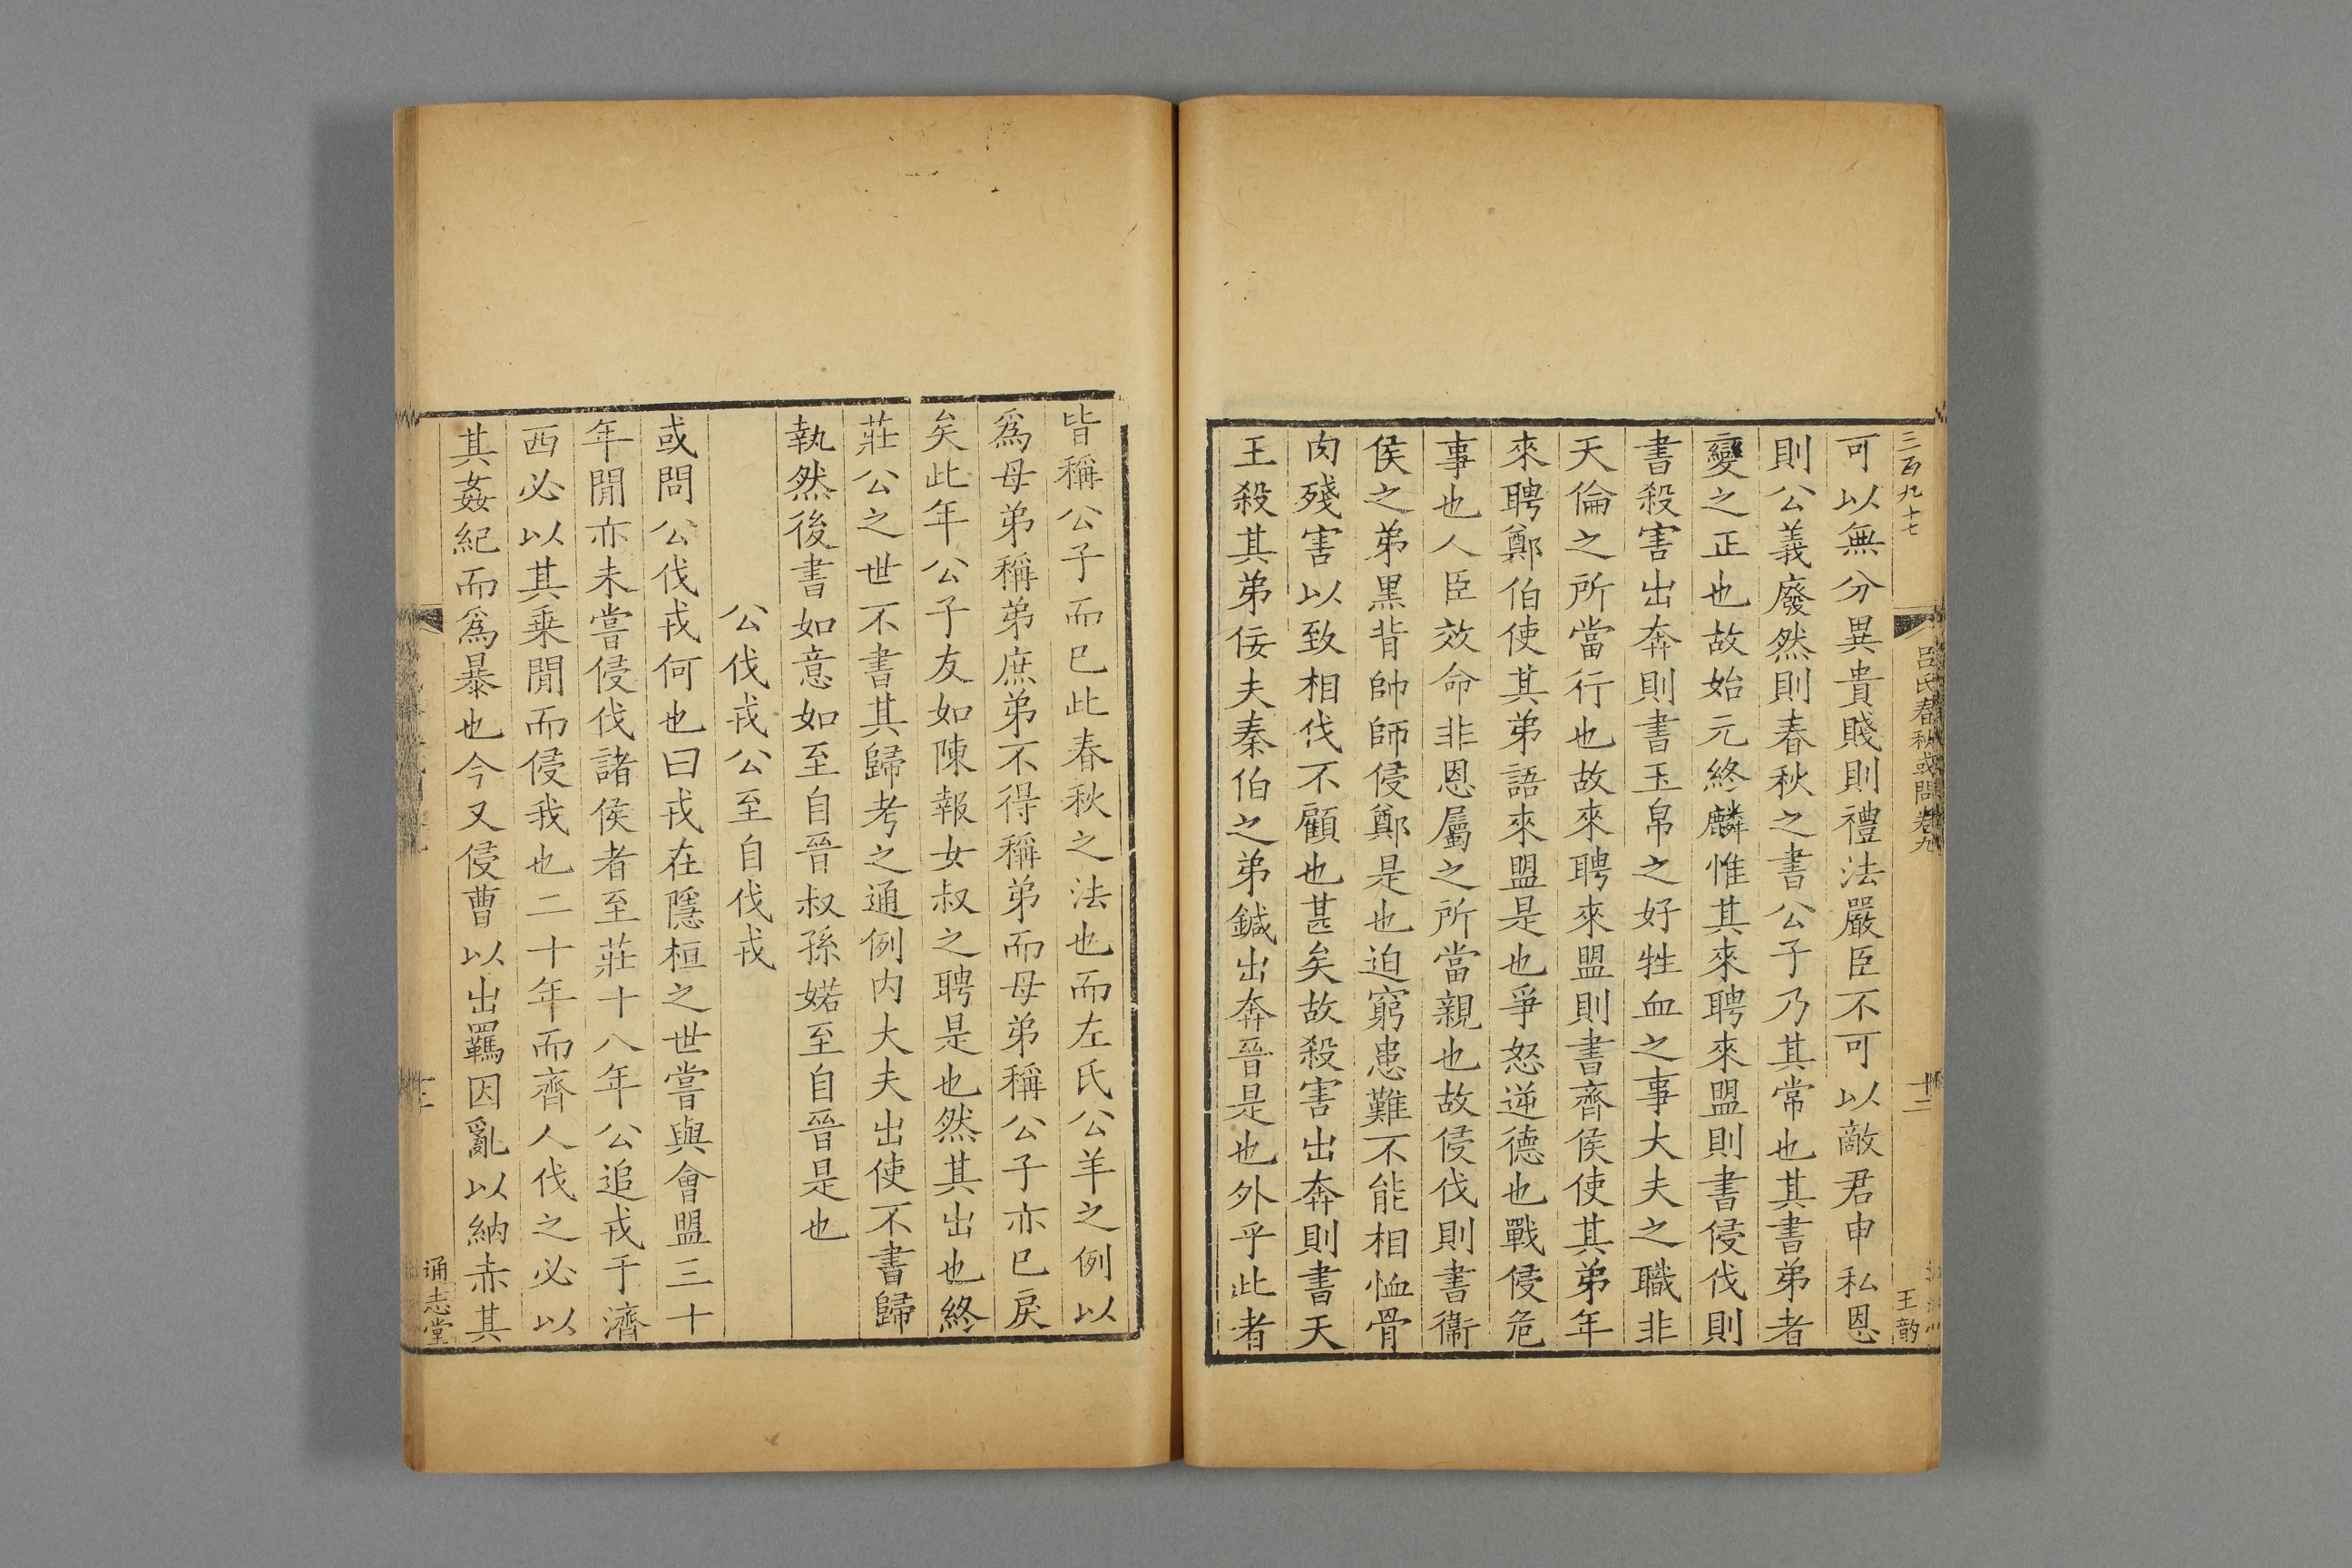 三百九十七
呂氏春秋或問卷九
十二
王
可以無分異貴賤則禮法嚴臣不可以敵君申私恩
則公義廢然則春秋之書公子乃其常也其書弟者
變之正也故始元終麟惟其來聘來盟則書侵伐則
書殺害出奔則書玉帛之好牲血之事大夫之職非
天倫之所當行也故來聘來盟則書齊侯使其弟年
來聘鄭伯使其弟語來盟是也爭怒逆德也戰侵危
事也人臣效命非恩屬之所當親也故侵伐則書衞
侯之弟黑背帥師侵鄭是也迫窮患難不能相恤骨
肉殘害以致相伐不顧也甚矣故殺害出奔則書天
王殺其弟佞夫秦伯之弟鍼出奔晉是也外乎此者
皆稱公子而已此春秋之法也而左氏公羊之例以
爲母弟稱弟庶弟不得稱弟而母弟稱公子亦已戾
矣此年公子友如陳報女叔之聘是也然其出也終
莊公之世不書其歸考之通例内大夫出使不書歸
執然後書如意如至自晉叔孫婼至自晉是也
公伐戎公至自伐戎
或問公伐戎何也曰戎在隱桓之世嘗與會盟三十
年閒亦未嘗侵伐諸侯者至莊十八年公追戎于濟
西必以其乗閒而侵我也二十年而齊人伐之必以
其姦紀而爲暴也今又侵曹以出羈因亂以納赤其
通志堂